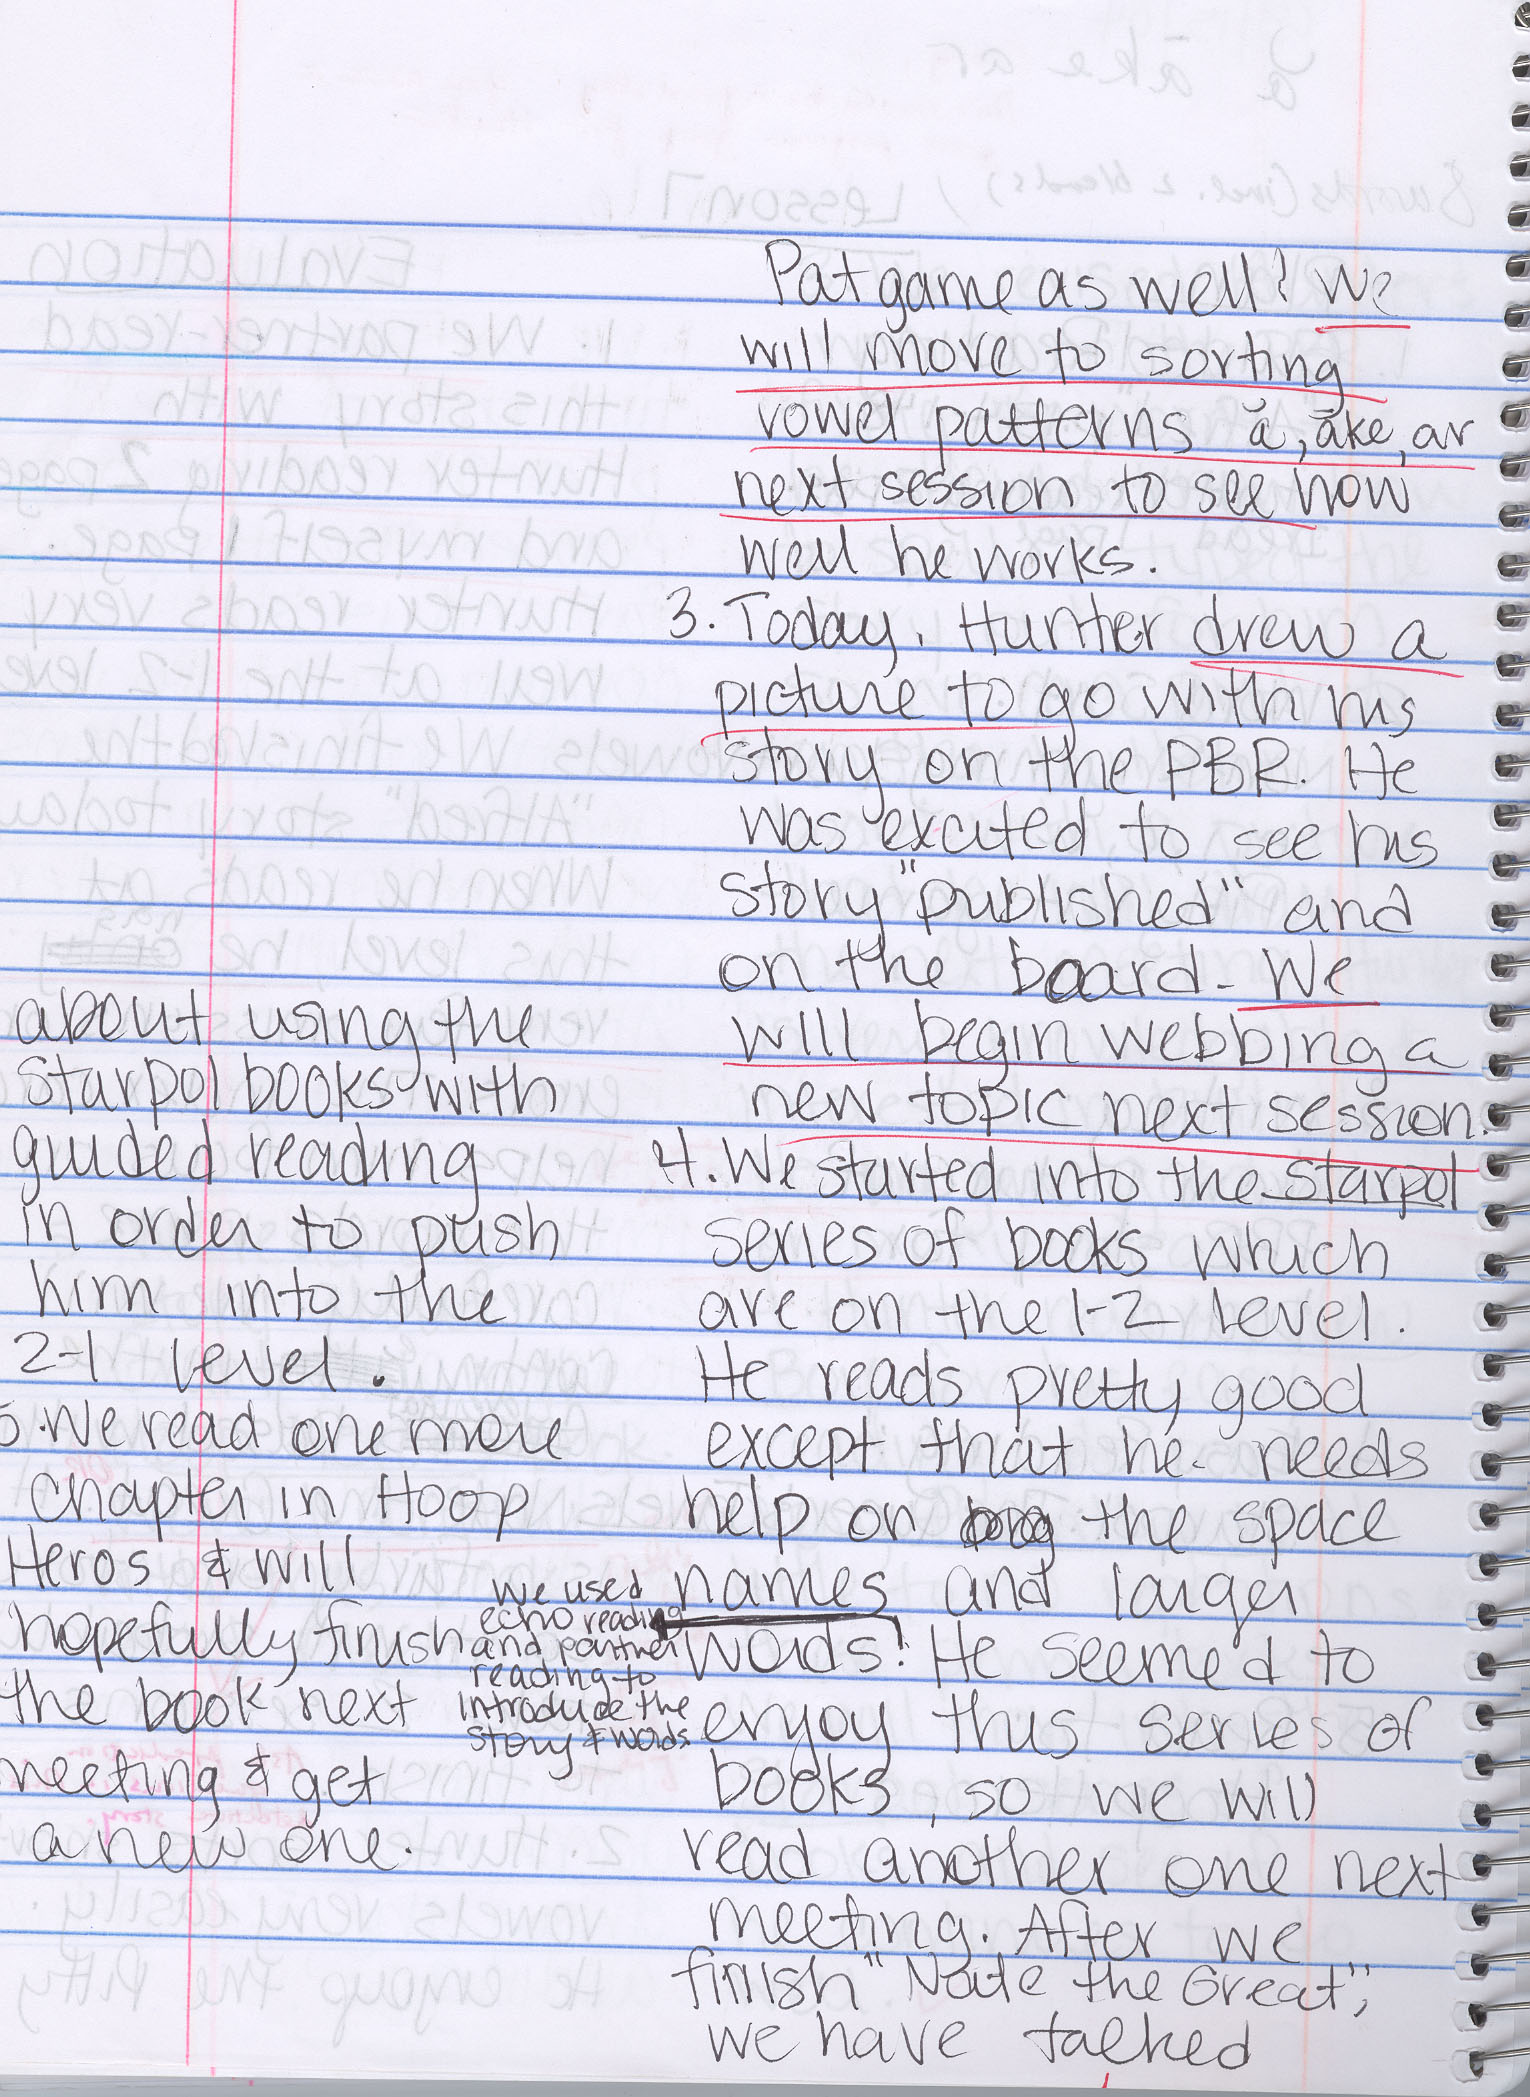 Pat game as well! We
will move to sorting
vowel patterns ă, āke, ar
next session to see how
well he works.
3. Today, Hunter drew a
picture to go with his
story on the PBR. He
was excited to see his
story "published" and
on the board. We
will begin webbing a
new topic next session.
4. We started into the Starpol
series of books which
are on the 1-2 level.
He reads pretty good
except that he needs
help on the space
names and larger
words! He seemed to
enjoy this series of
books, so we will
read another one next
meeting. After we
finish "Nate the Great",
we have talked
we used
echo reading
and partner
reading to
introduce the
story & words
about using the
Starpol books with
guided reading
in order to push
him into the
2-1 level.
5. We read one more
chapter in Hoop
Heros & will
hopefully finish
the book next
meeting & get
a new one.